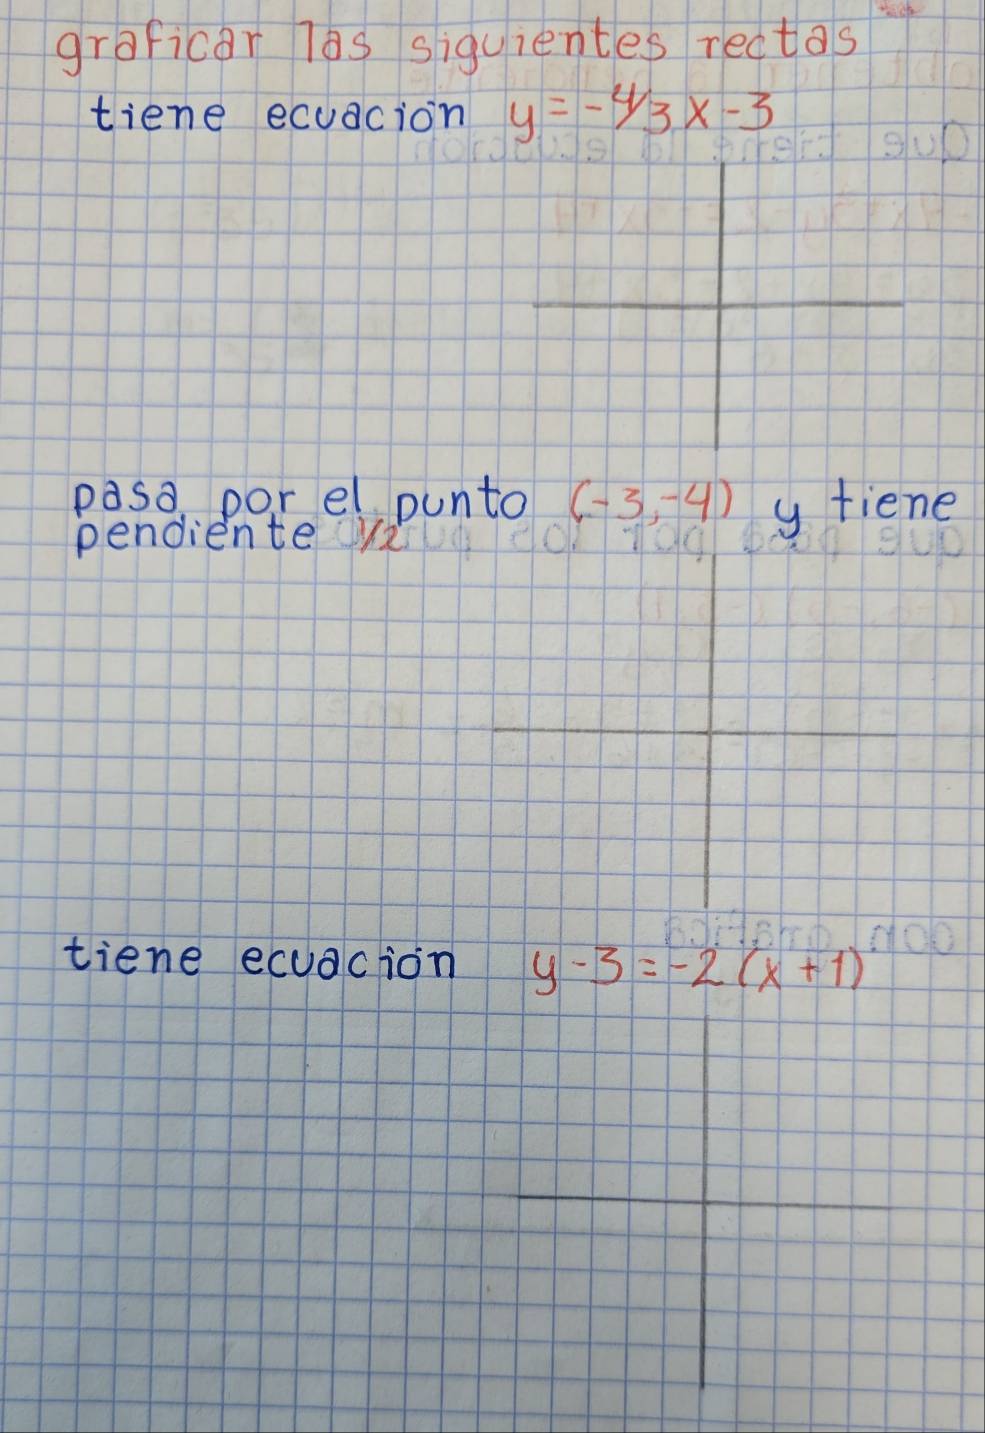 graficar las siguientes rectas
tiene ecuación y = -4/3 x - 3
pasa por el punto (-3, -4) y tiene
pendiente 1/2
tiene ecuación y - 3 = -2 (x + 1)